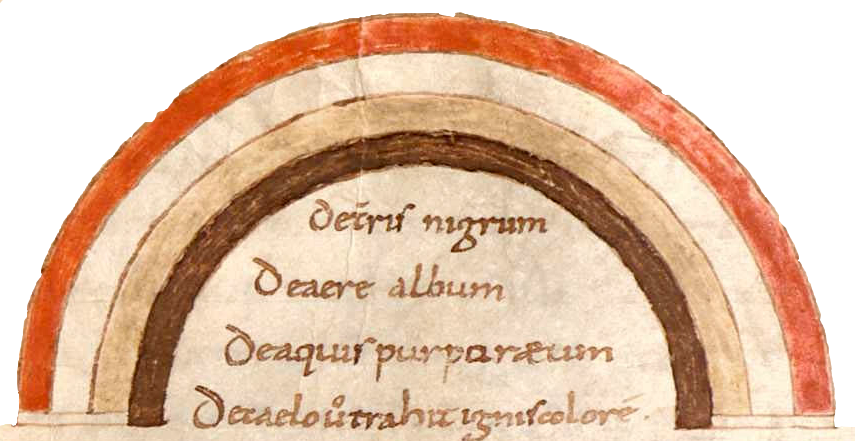 De tr̄is nigrum
Deaere album
Deaquis purpuraeum
Decaelo ů trahit ignis colorē.